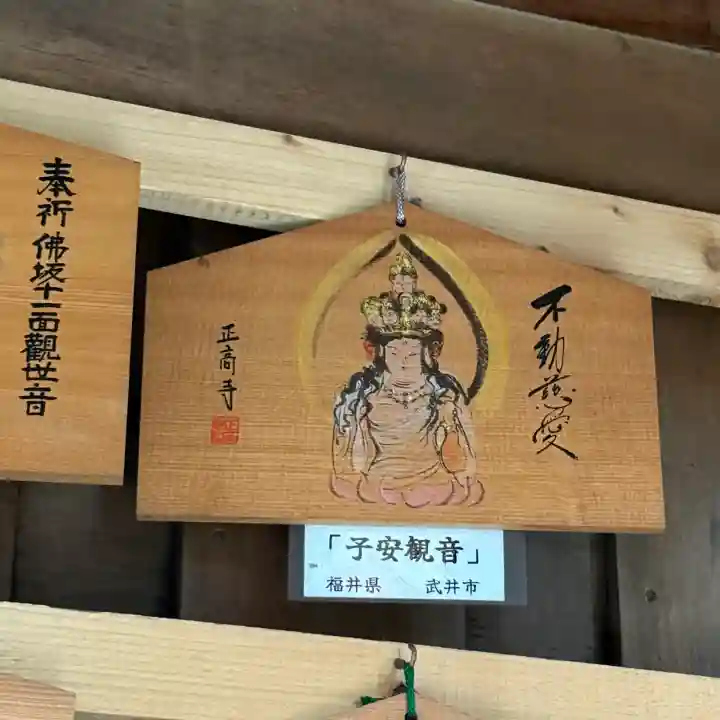 不動慈愛
正高寺
奉祈佛坂十一面觀世音
「子安観音」
福井県 武井市